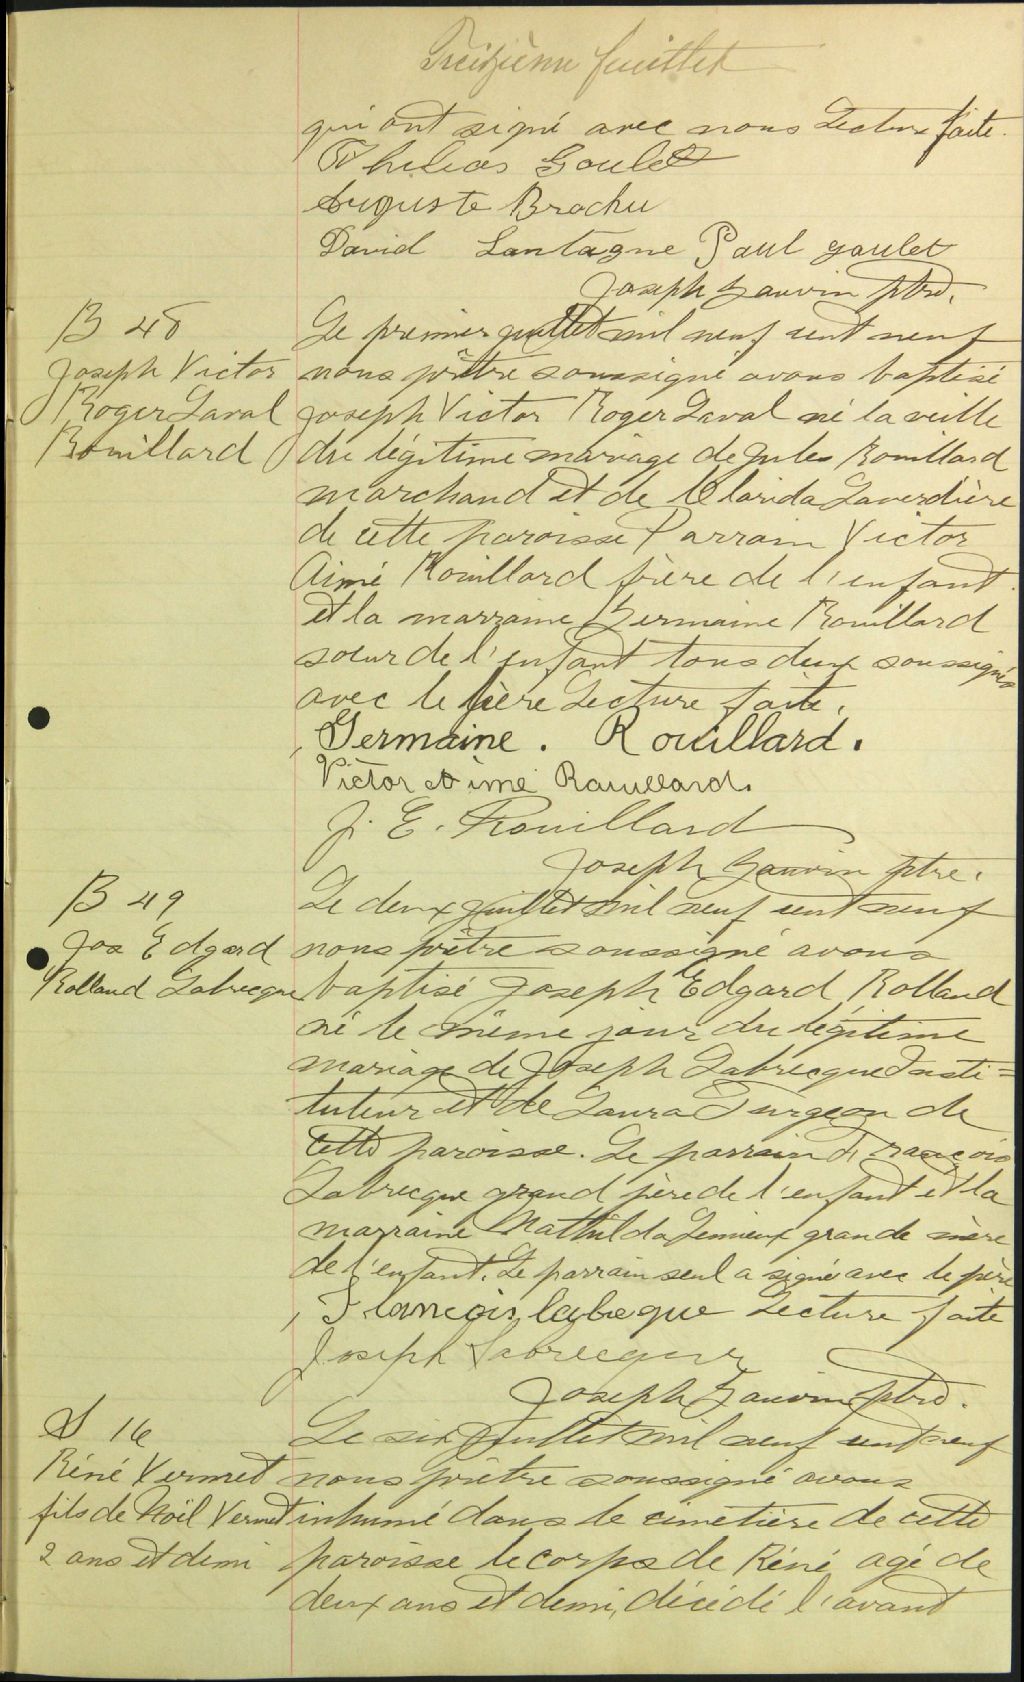 Treizième feuillet
qui ont signé avec nous Lecture faite.
Philias Goulet
Auguste Brochu
David Lantagne Paul goulet
Joseph Gauvin ptre.
B 48
Joseph Victor
Roger Laval
Rouillard
Le premier juillet mil neuf cent neuf
nous prêtre soussigné avons baptisé
Joseph Victor Roger Laval né la veille
du légitime mariage de Jules Rouillard
marchand et de Clarida Laverdière
de cette paroisse Parrain Victor
Aimé Rouillard frère de l'enfant
et la marraine Germaine Rouillard
soeur de l'enfant tous deux soussignés
avec le père Lecture faite.
Germaine. Rouillard.
Victor Aimé Rouillard.
J. E. Rouillard
Joseph Gauvin ptre.
B 49
Jos Edgard
Rolland Labrecque
Le deux juillet mil neuf cent neuf
nous prêtre soussigné avons
baptisé Joseph Edgard Rolland
né le même jour du légitime
mariage de Joseph Labrecque Insti=
tuteur et de Laura Turgeon de
cette paroisse. Le parrain François
Labrecque grand père de l'enfant et la
marraine Mathilda Lemieux grande mère
de l'enfant. Le parrain seul a signé avec le père
Francois labreque Lecture faite
Joseph Labrecque
Joseph Gauvin ptre.
S 16
Réné Vermet
fils de Noël Vermet
2 ans et demi
Le six juillet mil neuf cent neuf
nous prêtre soussigné avons
inhumé dans le cimetière de cette
paroisse le corps de Réné agé de
deux ans et demi, décédé l'avant